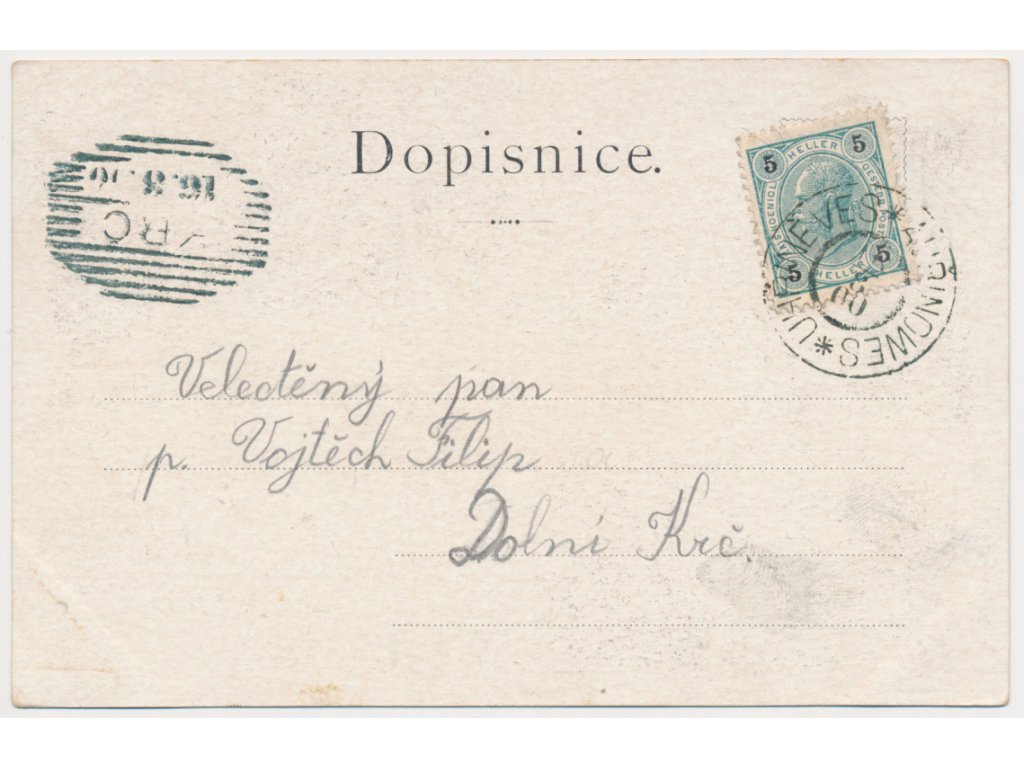 Dopisnice.
5 HELLER 5
5 HELLER 5
KRČ
16.3.00
Velectěný pan
p. Vojtěch Filip
Dolní Krč.